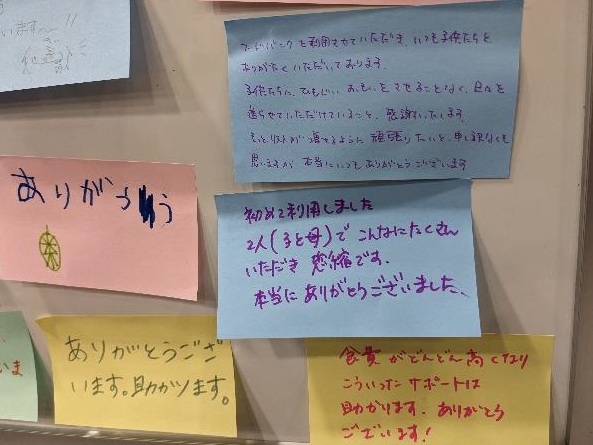 います〜!!
フードバンクを利用させていただき、いつも子供たちと
ありがたくいただいております。
子供たちに、ひもじいおもいをさせることなく、日々を
送らせていただけていること、感謝いたします。
頑張りたいと、申し訳なくも
思いますが 本当にいつもありがとうございます
ありがとう
初めて利用しました
2人(子と母)でこんなにたくさん
いただき 恐縮です.
本当にありがとうございました、
いま
ありがとうござ
います。助かります。
食費がどんどん高くなり
こういったサポートは
助かります. ありがとう
ございます!